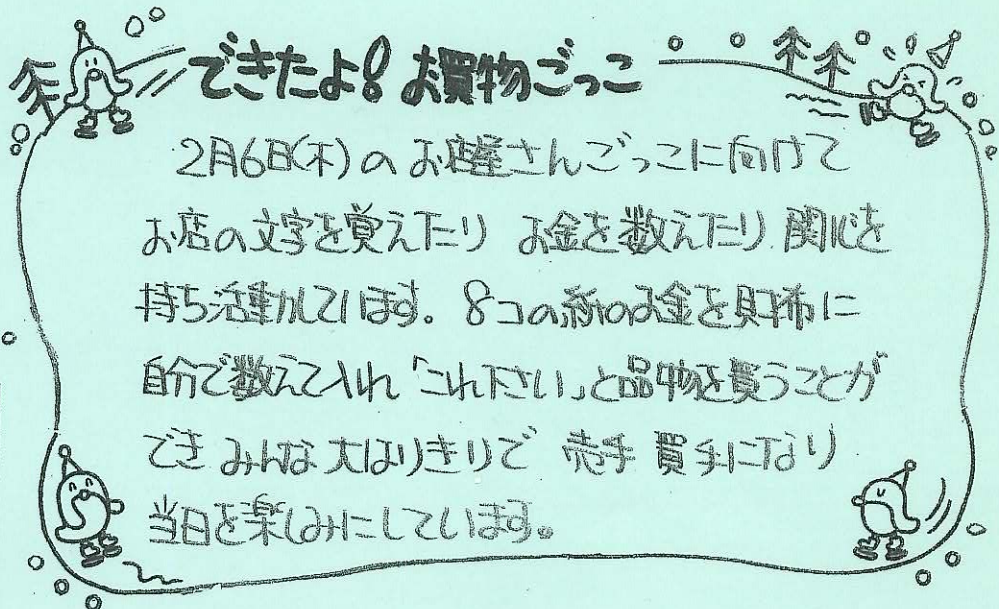 できたよ! お買物ごっこ
2月6日(木)の お店屋さんごっこに向けて
お店の文字を覚えたり お金を数えたり 関心を
持ち活動しています。 8コの紙のお金を財布に
自分で数えて入れ 「これ下さい」と品物を買うことが
でき みんな 大はりきりで 売手 買手になり
当日を楽しみにしています。